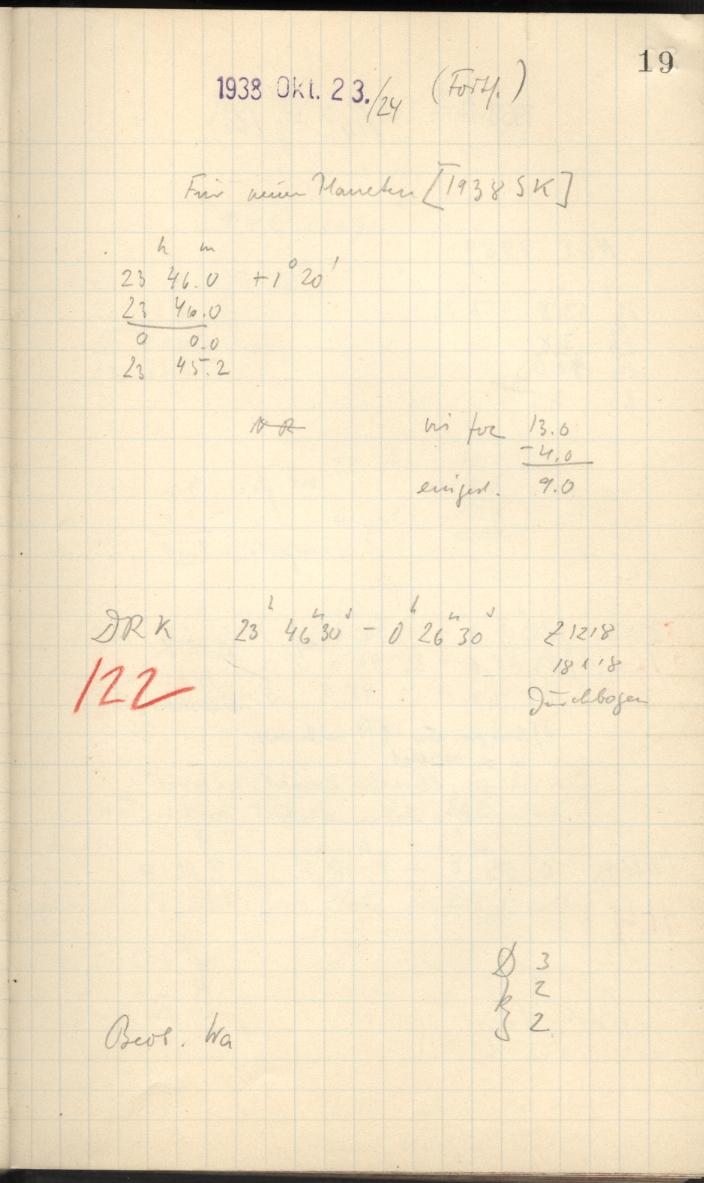 19
1938 Okt. 23./24 (Forts.)
Für neuen Planeten [1938 SK]
h m
23 46.0 +1° 20'
23 46.0
0 0.0
23 45.2
vis foc 13.0
-4.0
eingest. 9.0
DRK 23h 46m 30s - 0h 26m 30s Z 1218
18 x 18
122
Durchbogen
D 3
R 2
Beob. Wa
2